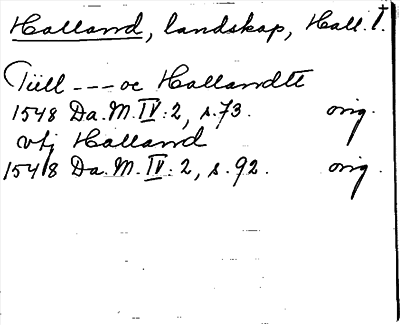 Halland, landskap, Hall. †.
Tüll --- oc Hallandtt
1548 Da. M. IV: 2, s. 73. orig.
vtj Halland
1548 Da. M. IV: 2, s. 92. orig.